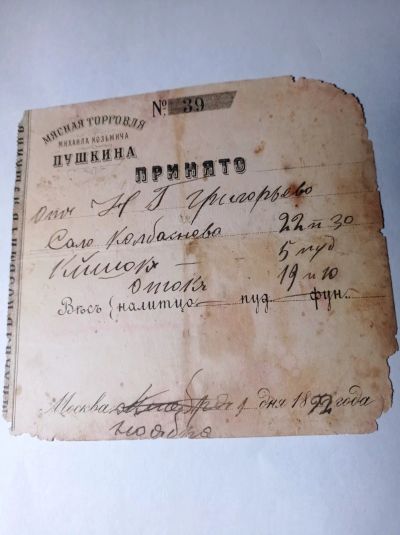 № 39
МЯСНАЯ ТОРГОВЛЯ
МИХАИЛА КОЗЬМИЧА
ПУШКИНА
ПРИНЯТО
Отъ Н Г Григорьева
Сало Колбаснова 22 п 30
Кишокъ — 5 пуд
19 п 10
Вѣсъ налитцо пуд. фун.
Москва 9 дня 1892 года
ноября